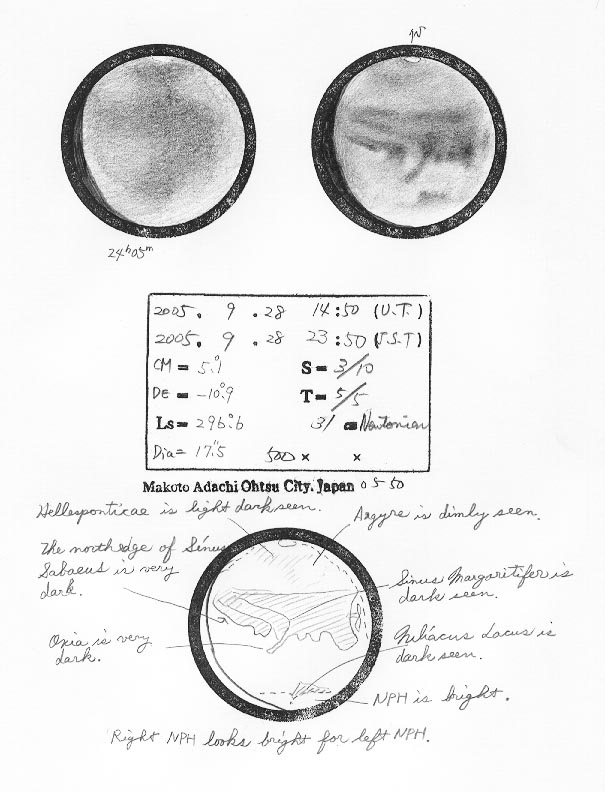 24h05m
2005. 9 .28 14:50 (U.T.)
2005. 9 .28 23:50 (J.S.T)
CM = 5.°1 S = 3/10
DE = -10.°9 T = 5/5
Ls = 296.°6 31 Newtonian
Dia = 17."5 500 × ×
Makoto Adachi Ohtsu City. Japan 0550
Hellesponticae is light dark seen.
Argyre is dimly seen.
The north edge of Sinus
Sabaeus is very
dark.
Sinus Margaritifer is
dark seen.
Oxia is very
dark.
Niliacus Lacus is
dark seen.
NPH is bright.
Right NPH looks bright for left NPH.